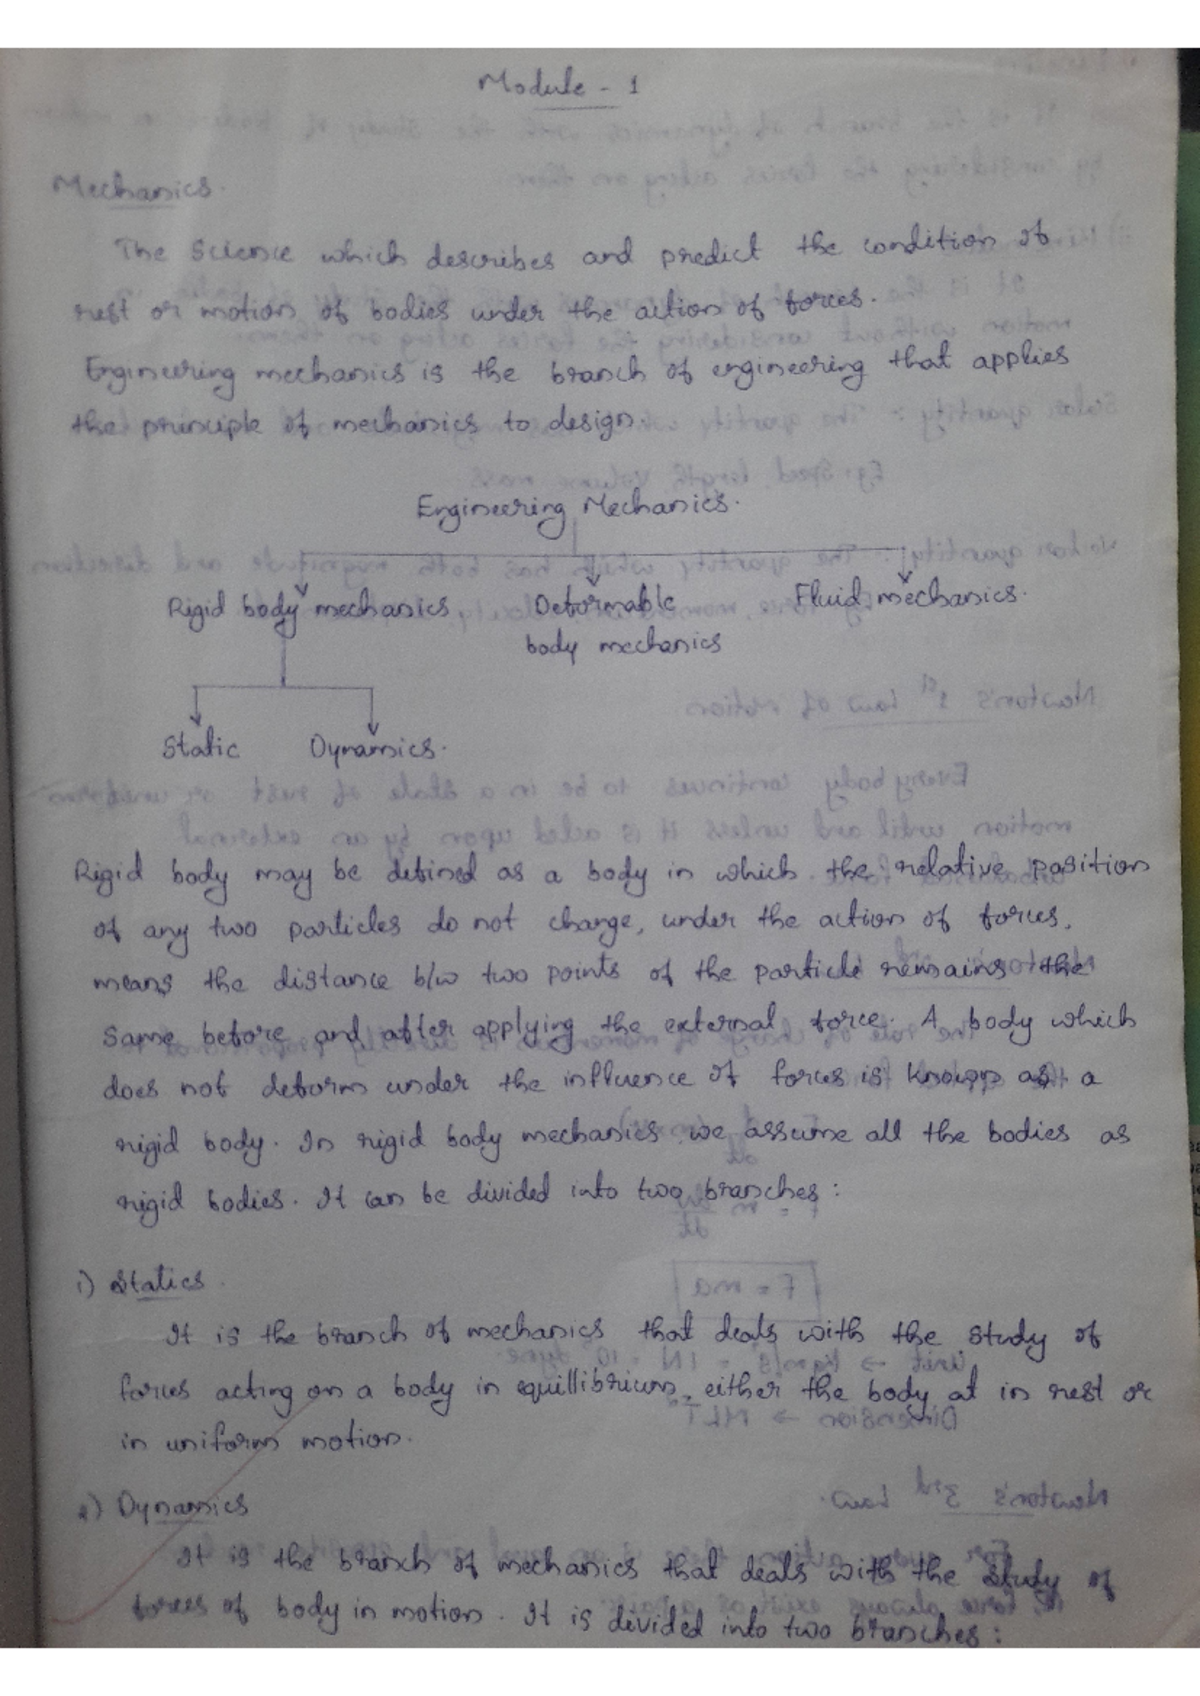 Module - 1
Mechanics.
The Science which describes and predict the condition of
rest or motion of bodies under the action of forces.
Engineering mechanics is the branch of engineering that applies
the principle of mechanics to design.
Engineering Mechanics.
Rigid body mechanics Deformable Fluid mechanics.
body mechanics
Static Dynamics.
Rigid body may be defined as a body in which the relative position
of any two particles do not change, under the action of forces,
means the distance b/w two points of the particle remains the
same before and after applying the external force. A body which
does not deform under the influence of forces is known as a
rigid body. In rigid body mechanics we assume all the bodies as
rigid bodies. It can be divided into two branches:
i) Statics.
It is the branch of mechanics that deals with the study of
forces acting on a body in equillibrium, either the body at in rest or
in uniform motion.
2) Dynamics
It is the branch of mechanics that deals with the study of
forces of body in motion. It is divided into two branches: